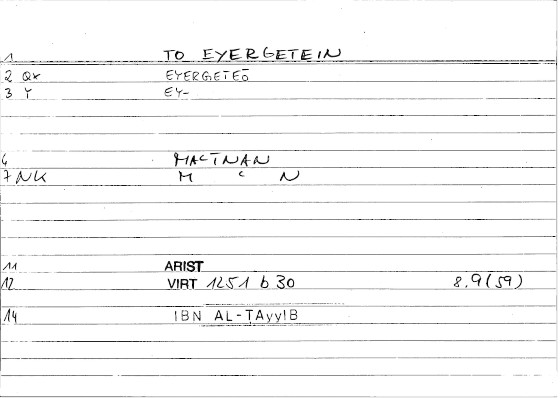 1 TO EYERGETEIN
2 QX EYERGETEŌ
3 Y EY-
6 MACTNAN
7 NK M C N
11 ARIST
12 VIRT 1251 b 30 8,9(59)
14 IBN AL-TAyyIB